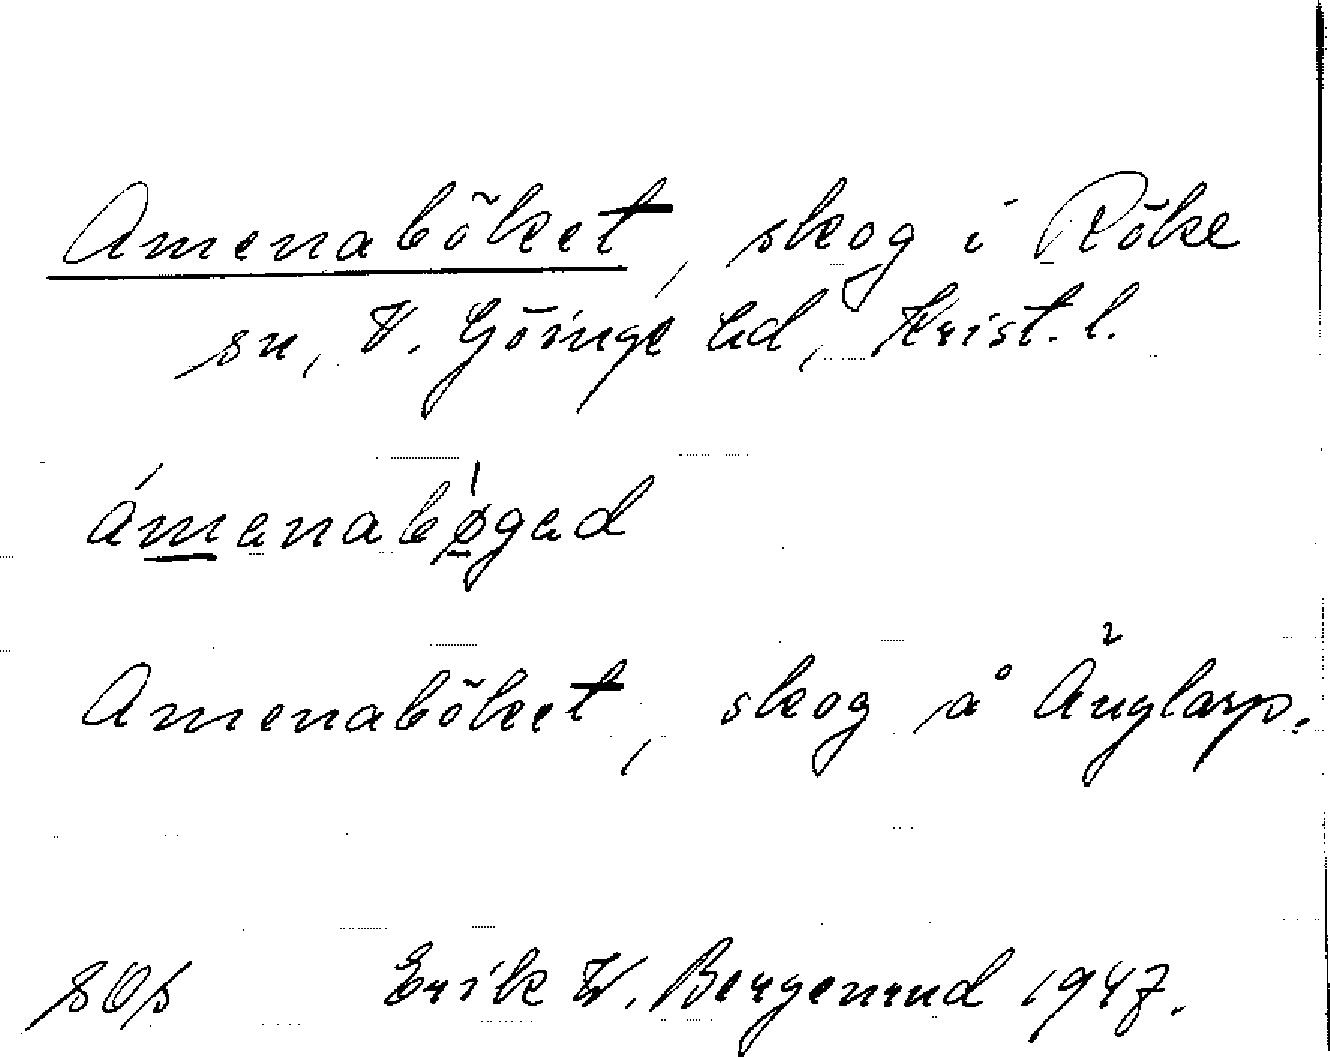 Amenaböket, skog i Röke
sn, V. Göinge hd, Krist. l.
ámenabøgad
Amenaböket, skog å Änglarp.
Erik W. Bergenrud 1947.